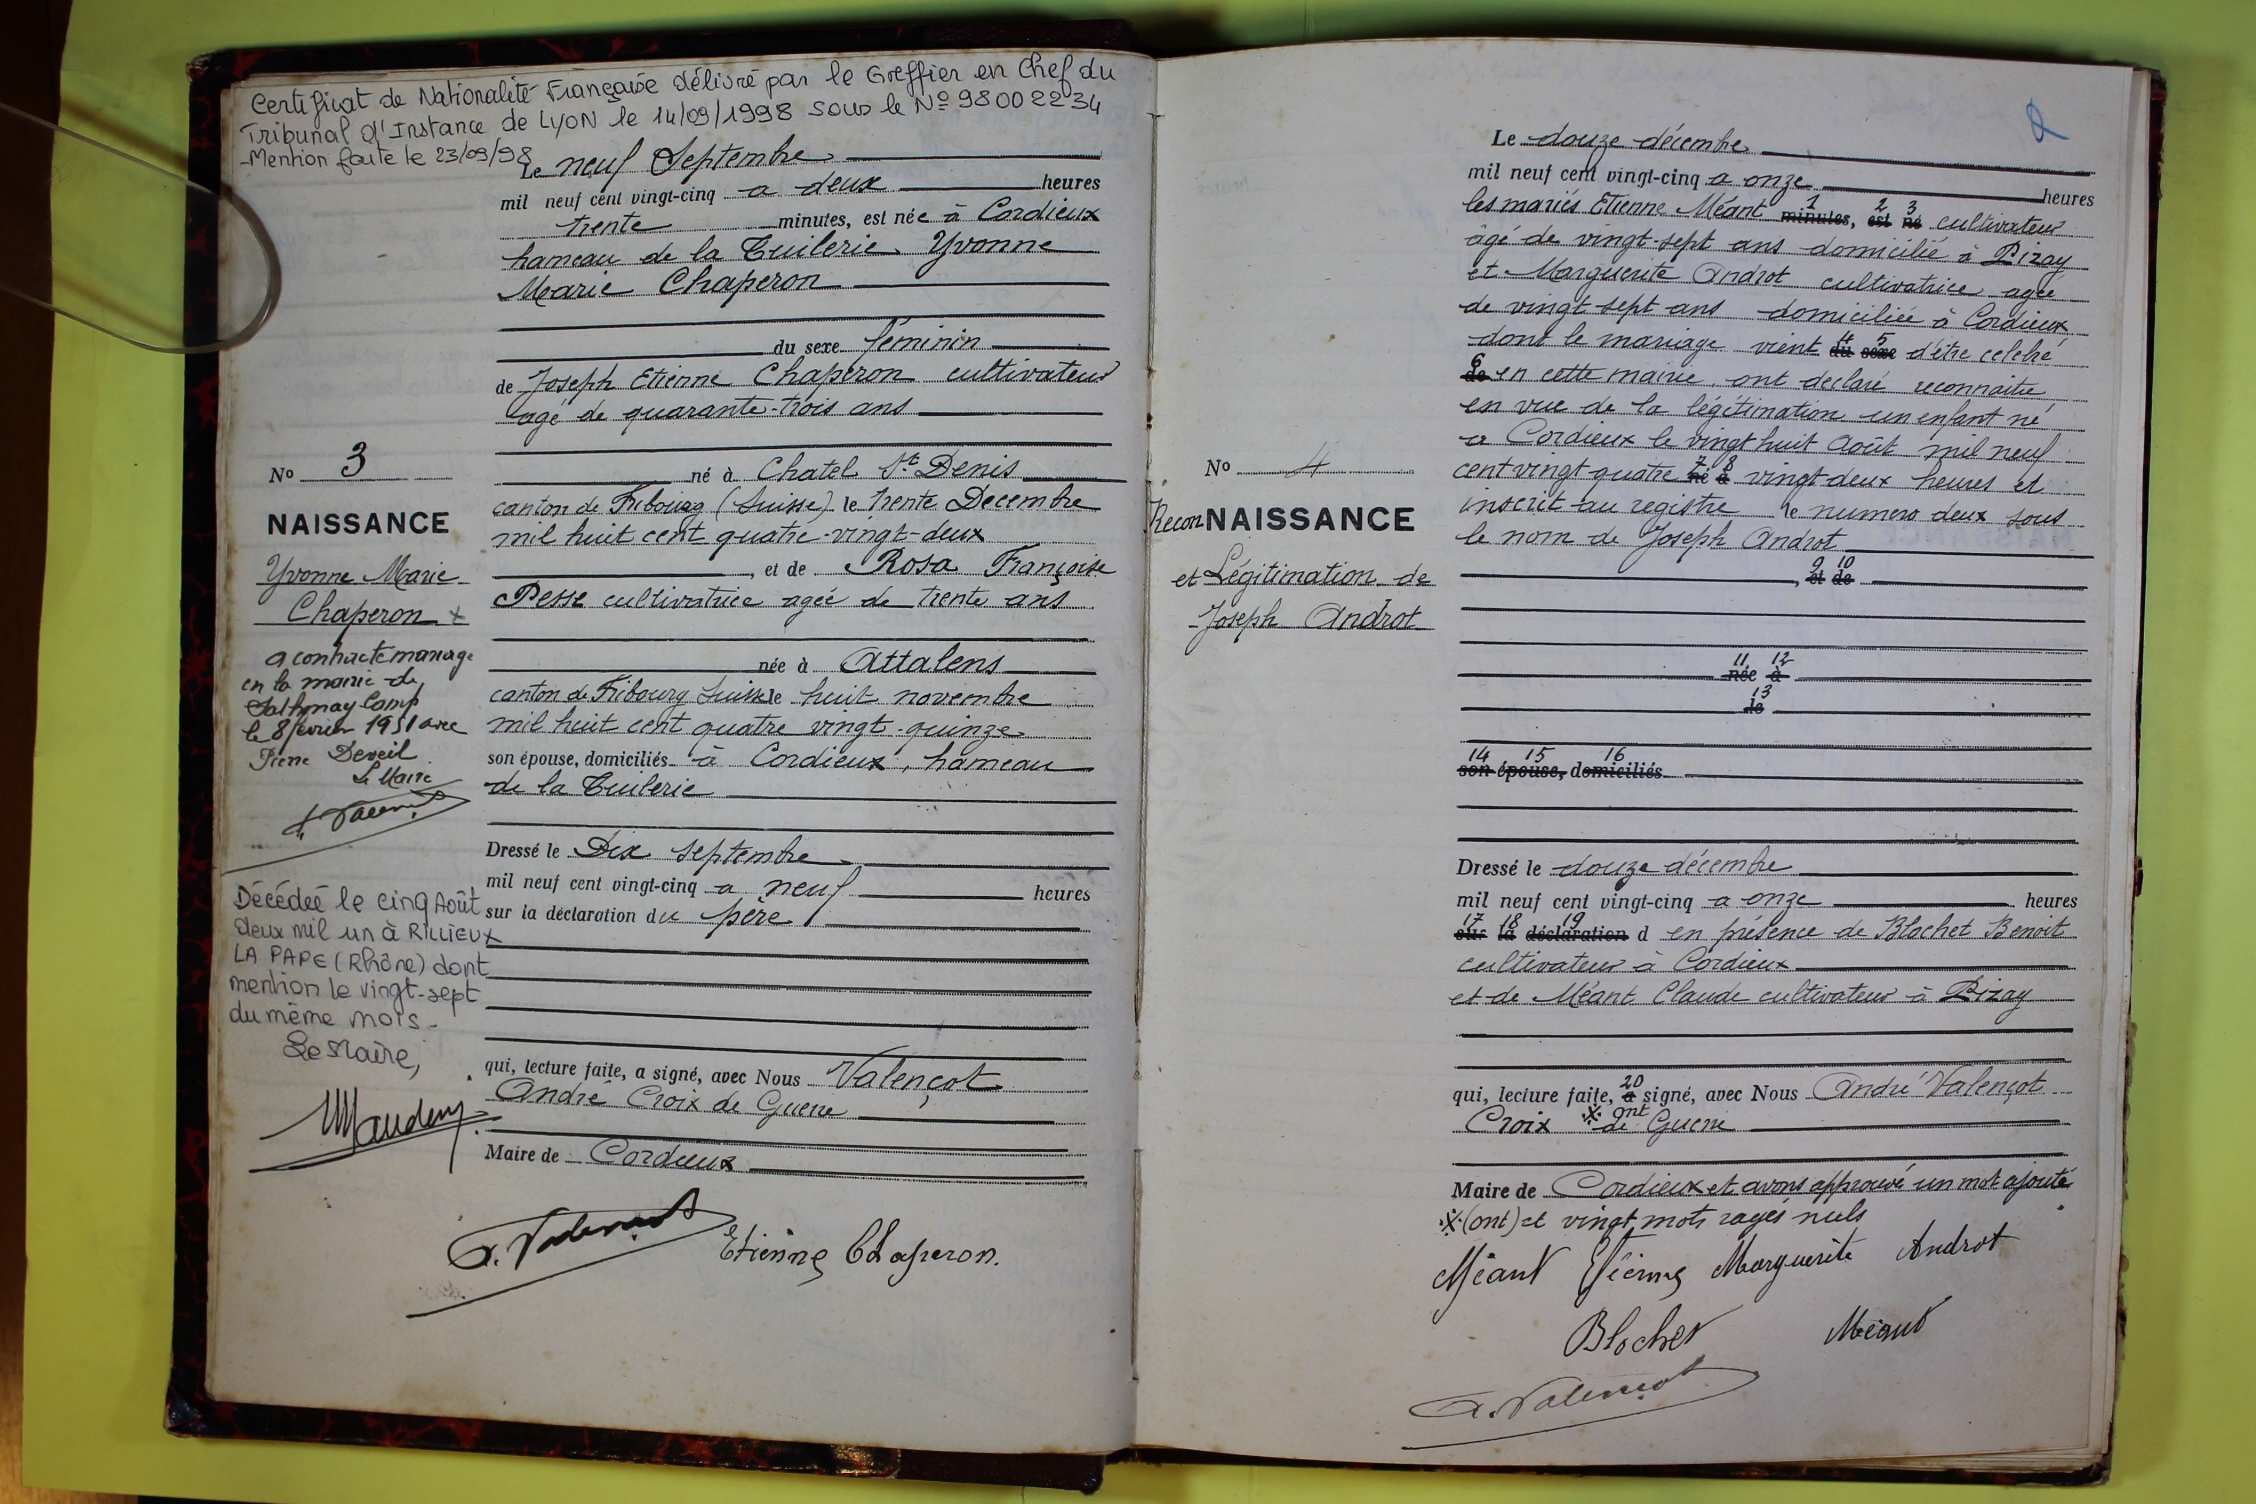 Certificat de Nationalité Française délivré par le Greffier en Chef du
Tribunal d'Instance de LYON le 14/09/1998 sous le Nº 98 00 22 34
Mention faite le 23/09/98
Le neuf Septembre
mil neuf cent vingt-cinq a deux heures
trente minutes, est née à Cordieux
hameau de la Tuilerie Yvonne
Marie Chaperon
du sexe féminin
de Joseph Etienne Chaperon cultivateur
agé de quarante-trois ans
né à Chatel St Denis
canton de Fribourg (Suisse) le trente Decembre
mil huit cent quatre-vingt-deux
, et de Rosa Françoise
Pesse cultivatrice agée de trente ans
née à Attalens
canton de Fribourg Suisse le huit novembre
mil huit cent quatre vingt-quinze
son épouse, domiciliés à Cordieux, hameau
de la Tuilerie
Dressé le Dix septembre
mil neuf cent vingt-cinq a neuf heures
sur la déclaration du père
qui, lecture faite, a signé, avec Nous Valençot
André Croix de Guerre
Maire de Cordieux
A. Valençot
Etienne Chaperon.
No 3
NAISSANCE
Yvonne Marie
Chaperon x
a contracté mariage
en la mairie de
Sathonay Camp
le 8 février 1951 avec
Pierre Deveil
Le Maire
A. Valençot
Décédée le cinq Août
deux mil un à RILLIEUX
LA PAPE (Rhône) dont
mention le vingt-sept
du même mois.
Le Maire,
2
Le douze décembre
mil neuf cent vingt-cinq a onze heures
les mariés Etienne Méant 1 minutes, 2 est 3 né cultivateur
âgé de vingt-sept ans domicilié à Pizay
et Marguerite Androt cultivatrice agée
de vingt sept ans domiciliée à Cordieux
dont le mariage vient 4 du 5 sexe d'être celebré
6 de en cette mairie ont declaré reconnaitre
en vue de la légitimation un enfant né
a Cordieux le vingt huit Août mil neuf
cent vingt quatre 7 né 8 à vingt-deux heures et
inscrit au registre le numero deux sous
le nom de Joseph Androt
, 9 et 10 de
11 née 12 à
13 le
14 son 15 épouse, 16 domiciliés
Dressé le douze décembre
mil neuf cent vingt-cinq a onze heures
17 sur 18 la 19 déclaration d en présence de Blochet Benoit
cultivateur à Cordieux
et de Méant Claude cultivateur à Pizay
qui, lecture faite, 20 a signé, avec Nous André Valençot
Croix ※ ont de Guerre
Maire de Cordieux et avons approuvé un mot ajouté
※ (ont) et vingt mots rayés nuls
Méant Etienne Marguerite Androt
Blochet Méant
A. Valençot
No 4
Recon NAISSANCE
et Légitimation de
Joseph Androt